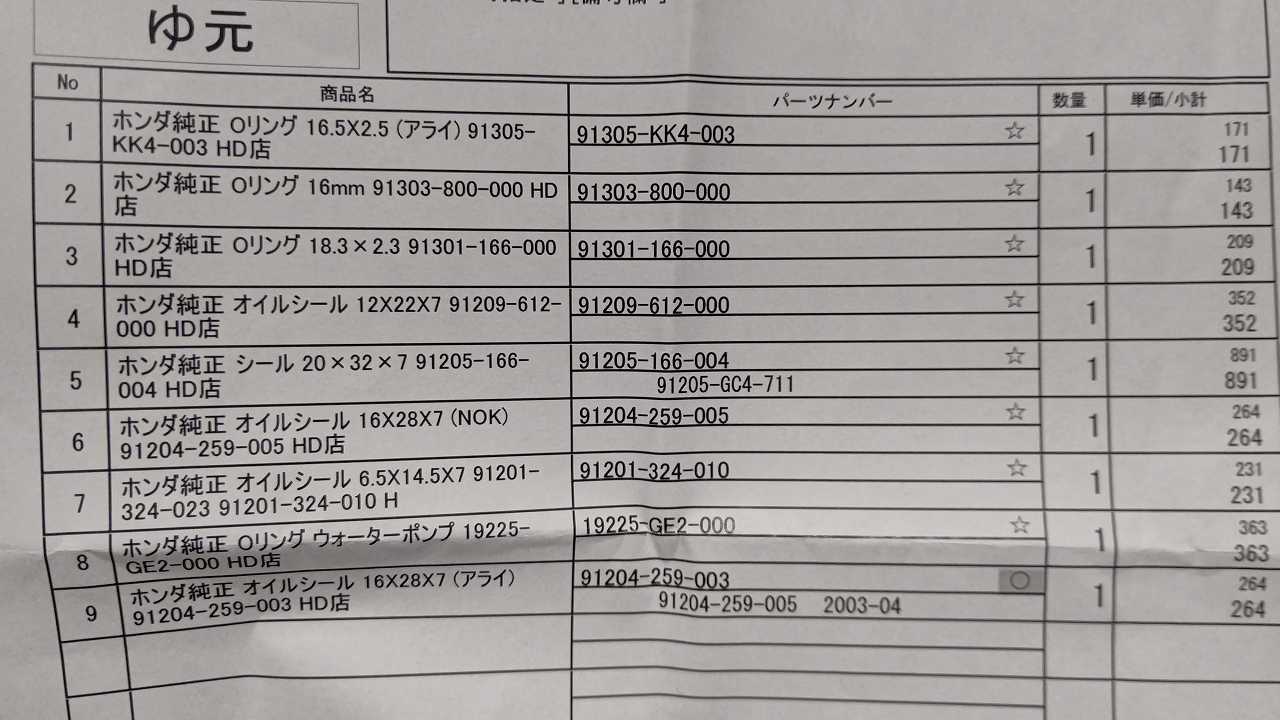 ゆ元
No 商品名 パーツナンバー 数量 単価/小計
1 ホンダ純正 Oリング 16.5X2.5 (アライ) 91305- 91305-KK4-003 ☆ 1 171
KK4-003 HD店 171
2 ホンダ純正 Oリング 16mm 91303-800-000 HD 91303-800-000 ☆ 1 143
店 143
3 ホンダ純正 Oリング 18.3×2.3 91301-166-000 91301-166-000 ☆ 1 209
HD店 209
4 ホンダ純正 オイルシール 12X22X7 91209-612- 91209-612-000 ☆ 1 352
000 HD店 352
5 ホンダ純正 シール 20×32×7 91205-166- 91205-166-004 ☆ 1 891
004 HD店 91205-GC4-711 891
6 ホンダ純正 オイルシール 16X28X7 (NOK) 91204-259-005 ☆ 1 264
91204-259-005 HD店 264
7 ホンダ純正 オイルシール 6.5X14.5X7 91201- 91201-324-010 ☆ 1 231
324-023 91201-324-010 H 231
8 ホンダ純正 Oリング ウォーターポンプ 19225- 19225-GE2-000 ☆ 1 363
GE2-000 HD店 363
9 ホンダ純正 オイルシール 16X28X7 (アライ) 91204-259-003 ○ 1 264
91204-259-003 HD店 91204-259-005 2003-04 264